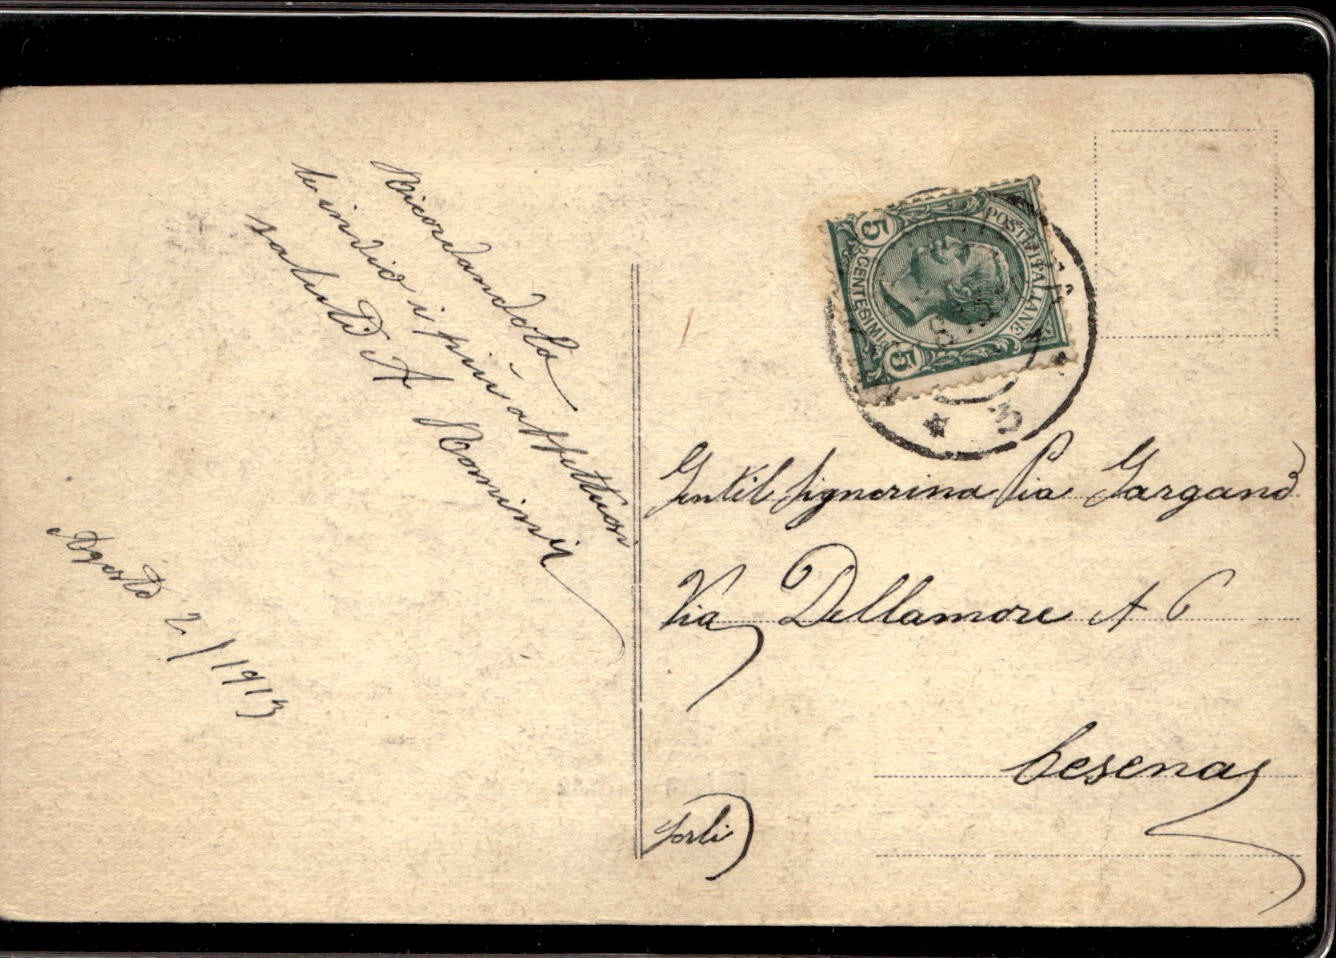 Ricordandola
le invio i più affettuosi
saluti A Romini
Agosto 2/1913
POSTE ITALIANE
5 CENTESIMI 5
* 3
Gentil Signorina Pia Gargano
Via Dellamore A 6
Cesena
(Forlì)